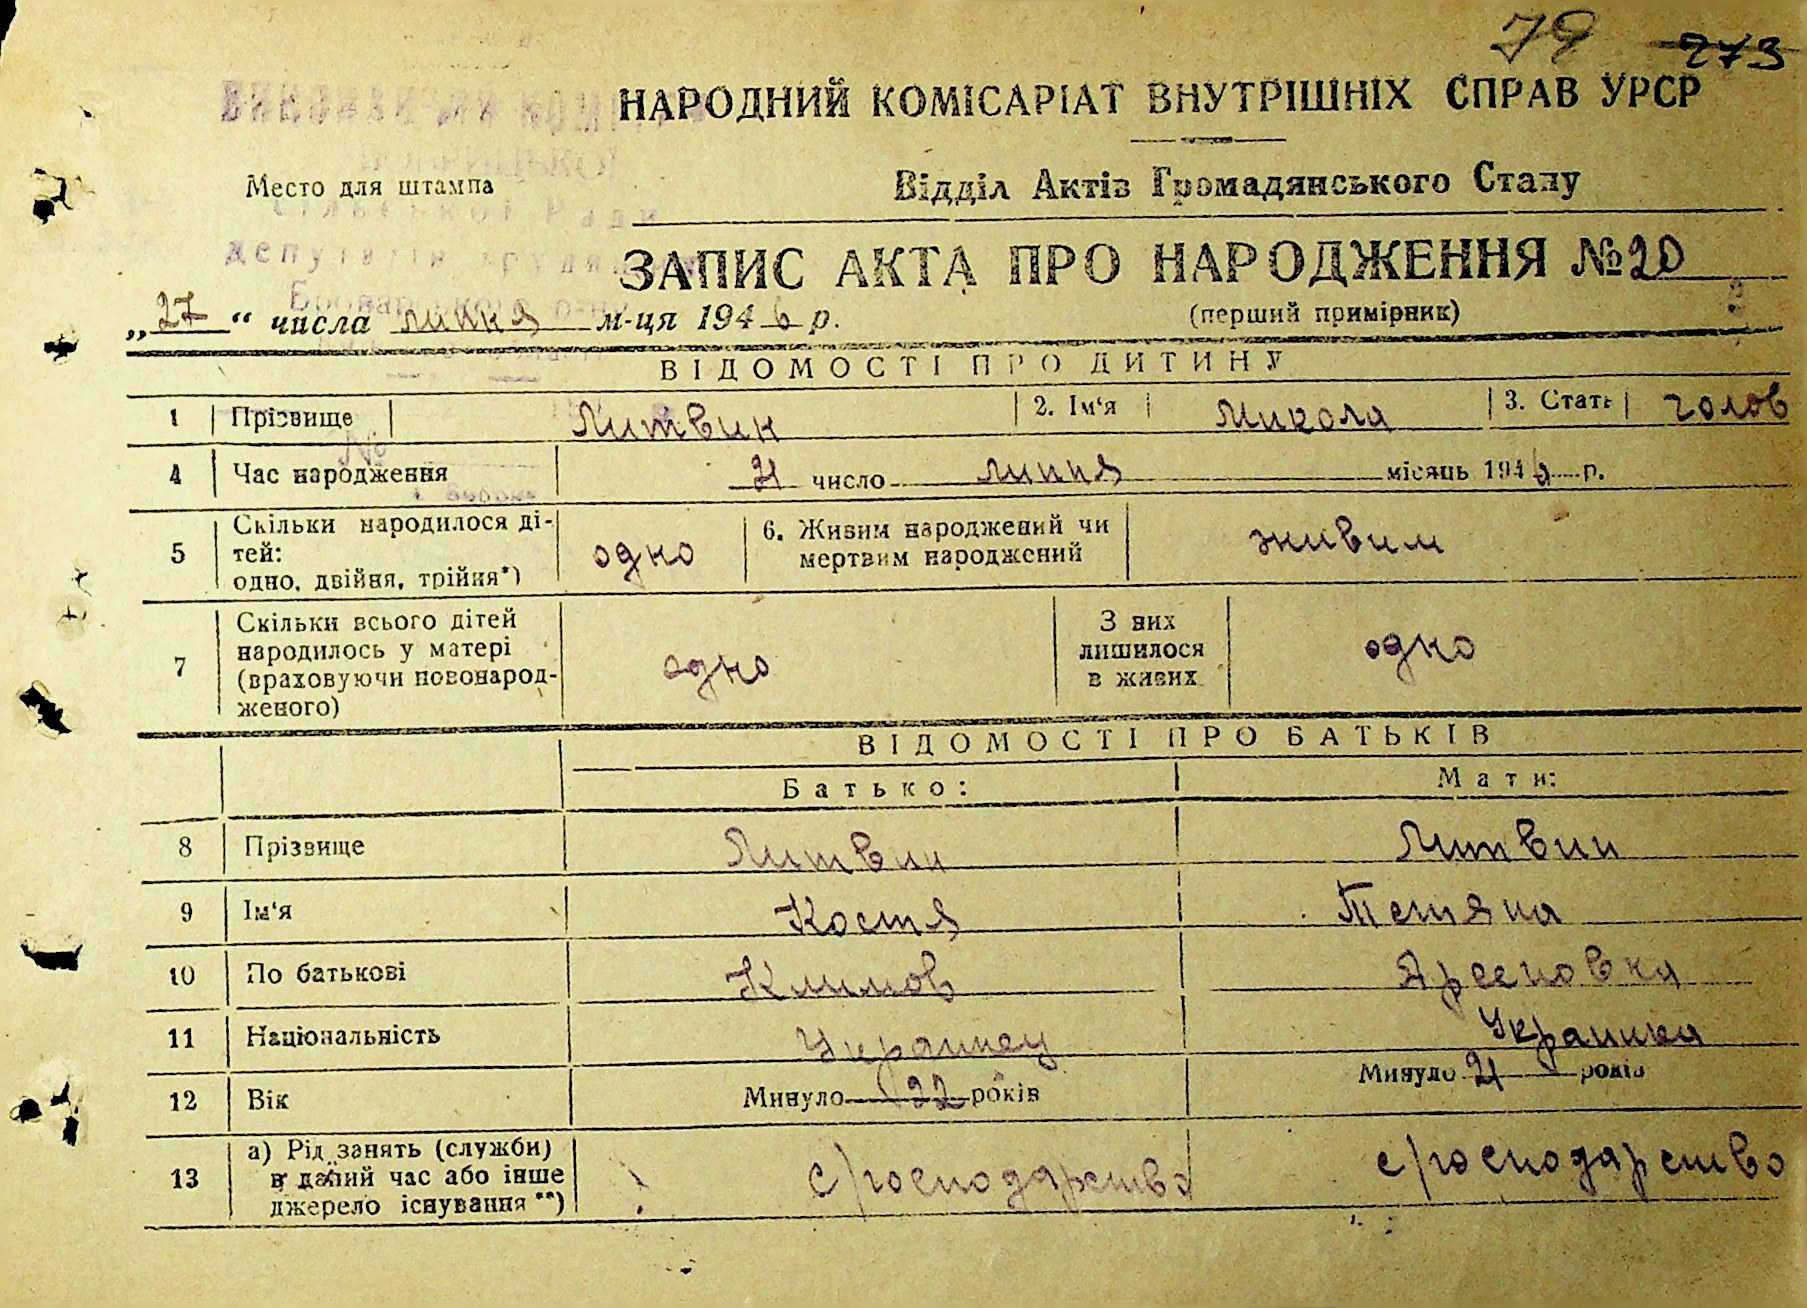 79 273
НАРОДНИЙ КОМІСАРІАТ ВНУТРІШНІХ СПРАВ УРСР
Место для штампа
Відділ Актів Громадянського Стану
ЗАПИС АКТА ПРО НАРОДЖЕННЯ № 20
„27“ числа липня м-ця 1946 р.
(перший примірник)
ВІДОМОСТІ ПРО ДИТИНУ
1 Прізвище Литвин 2. Ім'я Микола 3. Стать голов
4 Час народження 21 число липня місяць 1946 р.
5 Скільки народилося ді-
тей:
одно, двійня, трійня*)
одно
6. Живим народжений чи
мертвим народжений
живим
7 Скільки всього дітей
народилось у матері
(враховуючи новонарод-
женого)
одно
З них
лишилося
в живих
одно
ВІДОМОСТІ ПРО БАТЬКІВ
Батько: Мати:
8 Прізвище Литвин Литвин
9 Ім'я Костя Тетяна
10 По батькові Климов Арсеновна
11 Національність Украинец Украинка
12 Вік Минуло 22 років Минуло 21 років
13 а) Рід занять (служби)
в даний час або інше
джерело існування **)
с/господарство с/господарство